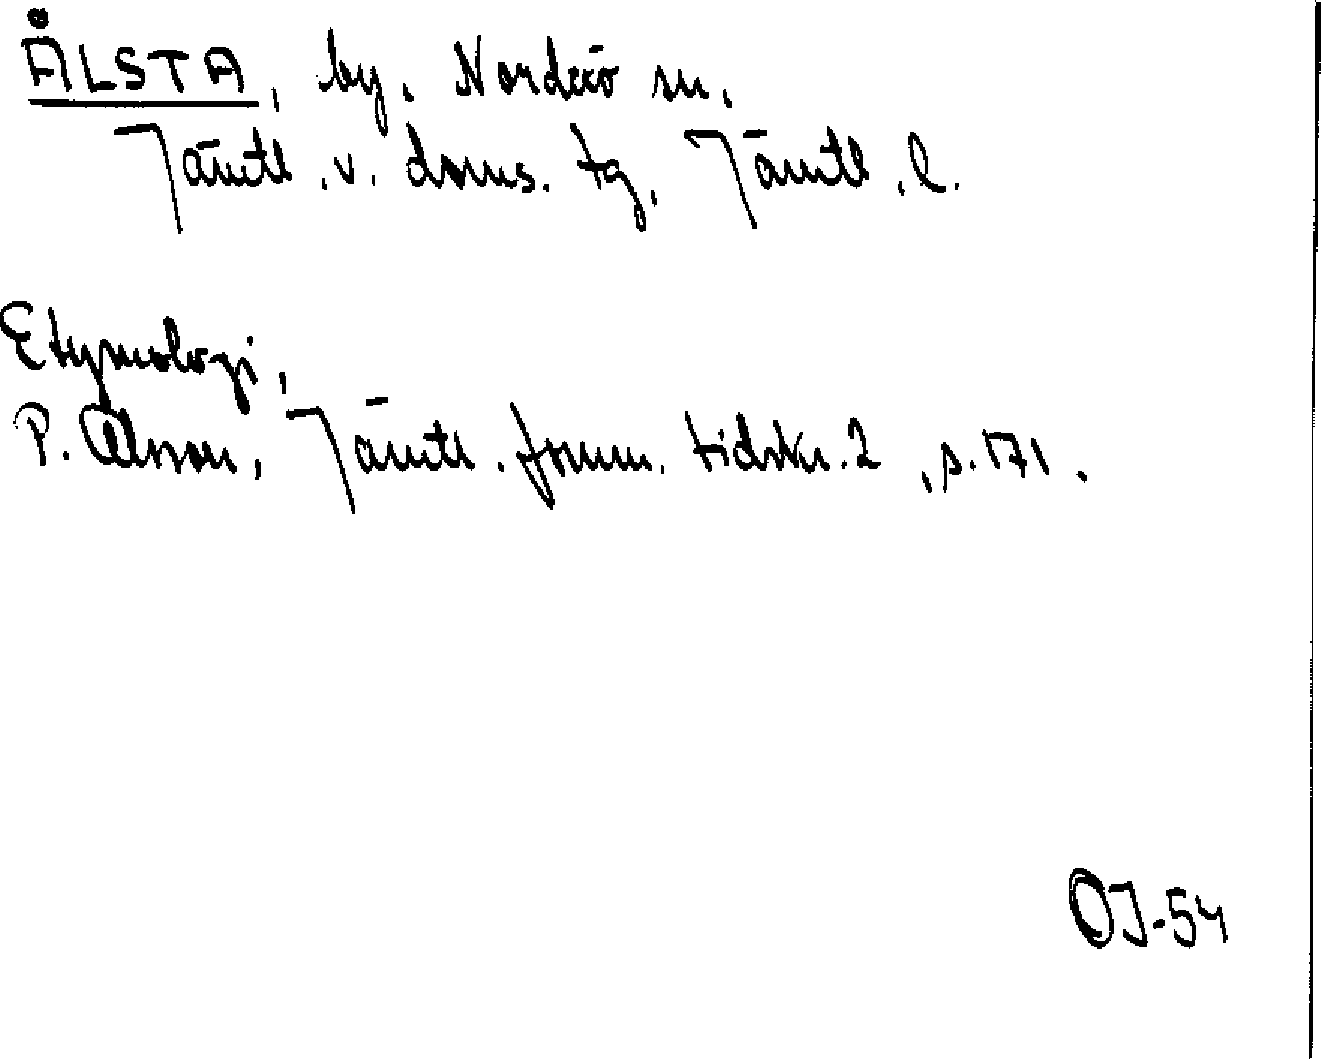 ÅLSTA, by. Norderö sn.
Jämtl. v. doms. tg. Jämtl. l.
Etymologi,
P. Olsson, Jämtl. fornm. tidskr. 2, s. 171.
OJ-54